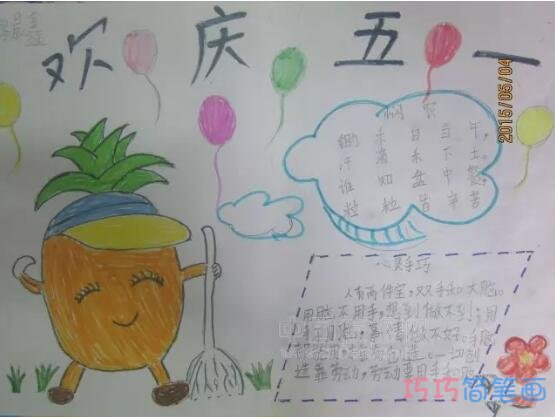 欢庆五一
悯农
锄禾日当午，
汗滴禾下土。
谁知盘中餐，
粒粒皆辛苦
2015/05/04
人有两件宝，双手和大脑。
用脑不用手，想到做不到；用
手不用脑，事情做不好。
一切创
造靠劳动，劳动要用手和脑。
巧巧简笔画